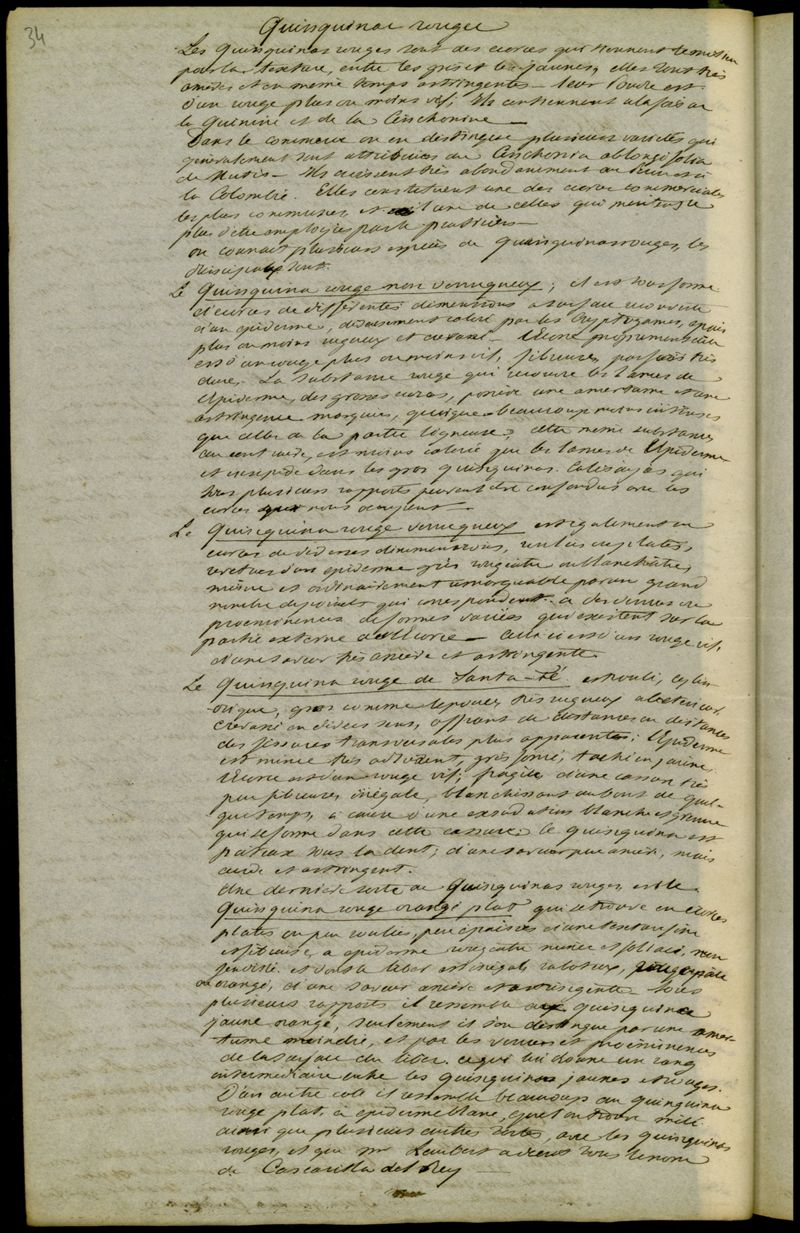 34
Quinquinas rouges
Les Quinquinas rouges sont des écorces qui tiennent le milieu
par la texture, entre les gris et les jaunes, elles sont très
amères et en même temps astringentes – leur Poudre est
d'un rouge plus ou moins vif; Ils contiennent à la fois de
la Quinine et de la Cinchonine –
Dans le commerce on en distingue plusieurs variétés qui
généralement sont attribuées au Cinchona oblongifolia
de Mutis – Ils croissent très abondamment au
la Colombie. Elles constituent une des écorces commerciales
les plus communes, et l'une de celles qui méritent le
plus d'être employées par le praticien –
on connait plusieurs espèces de Quinquinas rouges, les
principales sont.
Le Quinquina rouge non verruqueux; il est sous forme
d'écorces de différentes dimensions à surface recouverte
d'un épiderme, diversement coloré par les Cryptogames, épais
plus ou moins rugueux et crevassé – l'Écorce proprement dite
est d'un rouge plus ou moins vif, fibreuse, parfois très
dure, – La substance rouge qui recouvre les lames de
l'épiderme, des grosses écorces, possède une amertume et une
astringence marquées, quoique beaucoup moins intenses
que celles de la partie ligneuse; cette même substance
au contraire, est moins colorée que les lames de l'Épiderme
et insipide dans les gros quinquinas Calisayas qui
sous plusieurs rapports peuvent être confondus avec les
écorces qui nous occupent –
Le Quinquina rouge verruqueux est également en
écorces de diverses dimensions, roulées ou plates,
revêtues d'un épiderme gris rougeâtre ou blanchâtre,
mince et ordinairement remarquable par un grand
nombre de points qui correspondent à des verrues ou
proéminences de formes variées qui existent sur la
partie externe de l'Écorce – celle-ci est d'un rouge vif,
d'une saveur très amère et astringente.
Le Quinquina rouge de Santa-Fé est roulé, cylin-
-drique, gros comme le pouce, très rugueux à l'extérieur,
crevassé en divers sens, offrant de distances en distances
des fissures transversales plus apparentes; l'Épiderme
est mince très adhérent, gris foncé, taché en jaune,
l'Écorce est d'un rouge vif; fragile, d'une cassure très
peu fibreuse, inégale, blanchissant au bout de quel-
que temps, à cause d'une exsudation blanche et grenue
qui se forme dans cette cassure. Ce quinquina est
pâteux sous la dent; d'une saveur peu amère, mais
acide et astringente.
Une dernière sorte de Quinquinas rouges, est le
Quinquina rouge orangé plat qui se trouve en écorces
plates ou peu roulées, peu épaisses et d'une texture fine
et fibreuse, à épiderme rougeâtre mince et foliacé, non
fendillé et dont le liber est inégal, raboteux, rouge pâle
ou orangé, d'une saveur amère et astringente – sous
plusieurs rapports il ressemble au quinquina
jaune orangé, seulement il s'en distingue par une amer-
tume moindre, et par les verrues et proéminences
de la surface du liber, ce qui lui donne un rang
intermédiaire entre les quinquinas jaunes et rouges.
D'un autre coté il ressemble beaucoup au quinquina
rouge plat, à épiderme blanc, que l'on trouve mêlé
ainsi que plusieurs autres sortes, avec les quinquinas
rouges, et que Mr Laubert a décrit sous le nom
de Cascarilla del Rey –